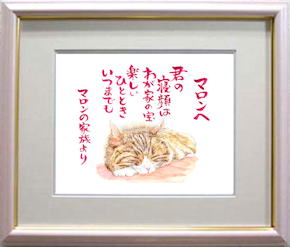 マロンへ
君の
寝顔は
わが家の宝
楽しい
ひととき
いつまでも
マロンの家族より